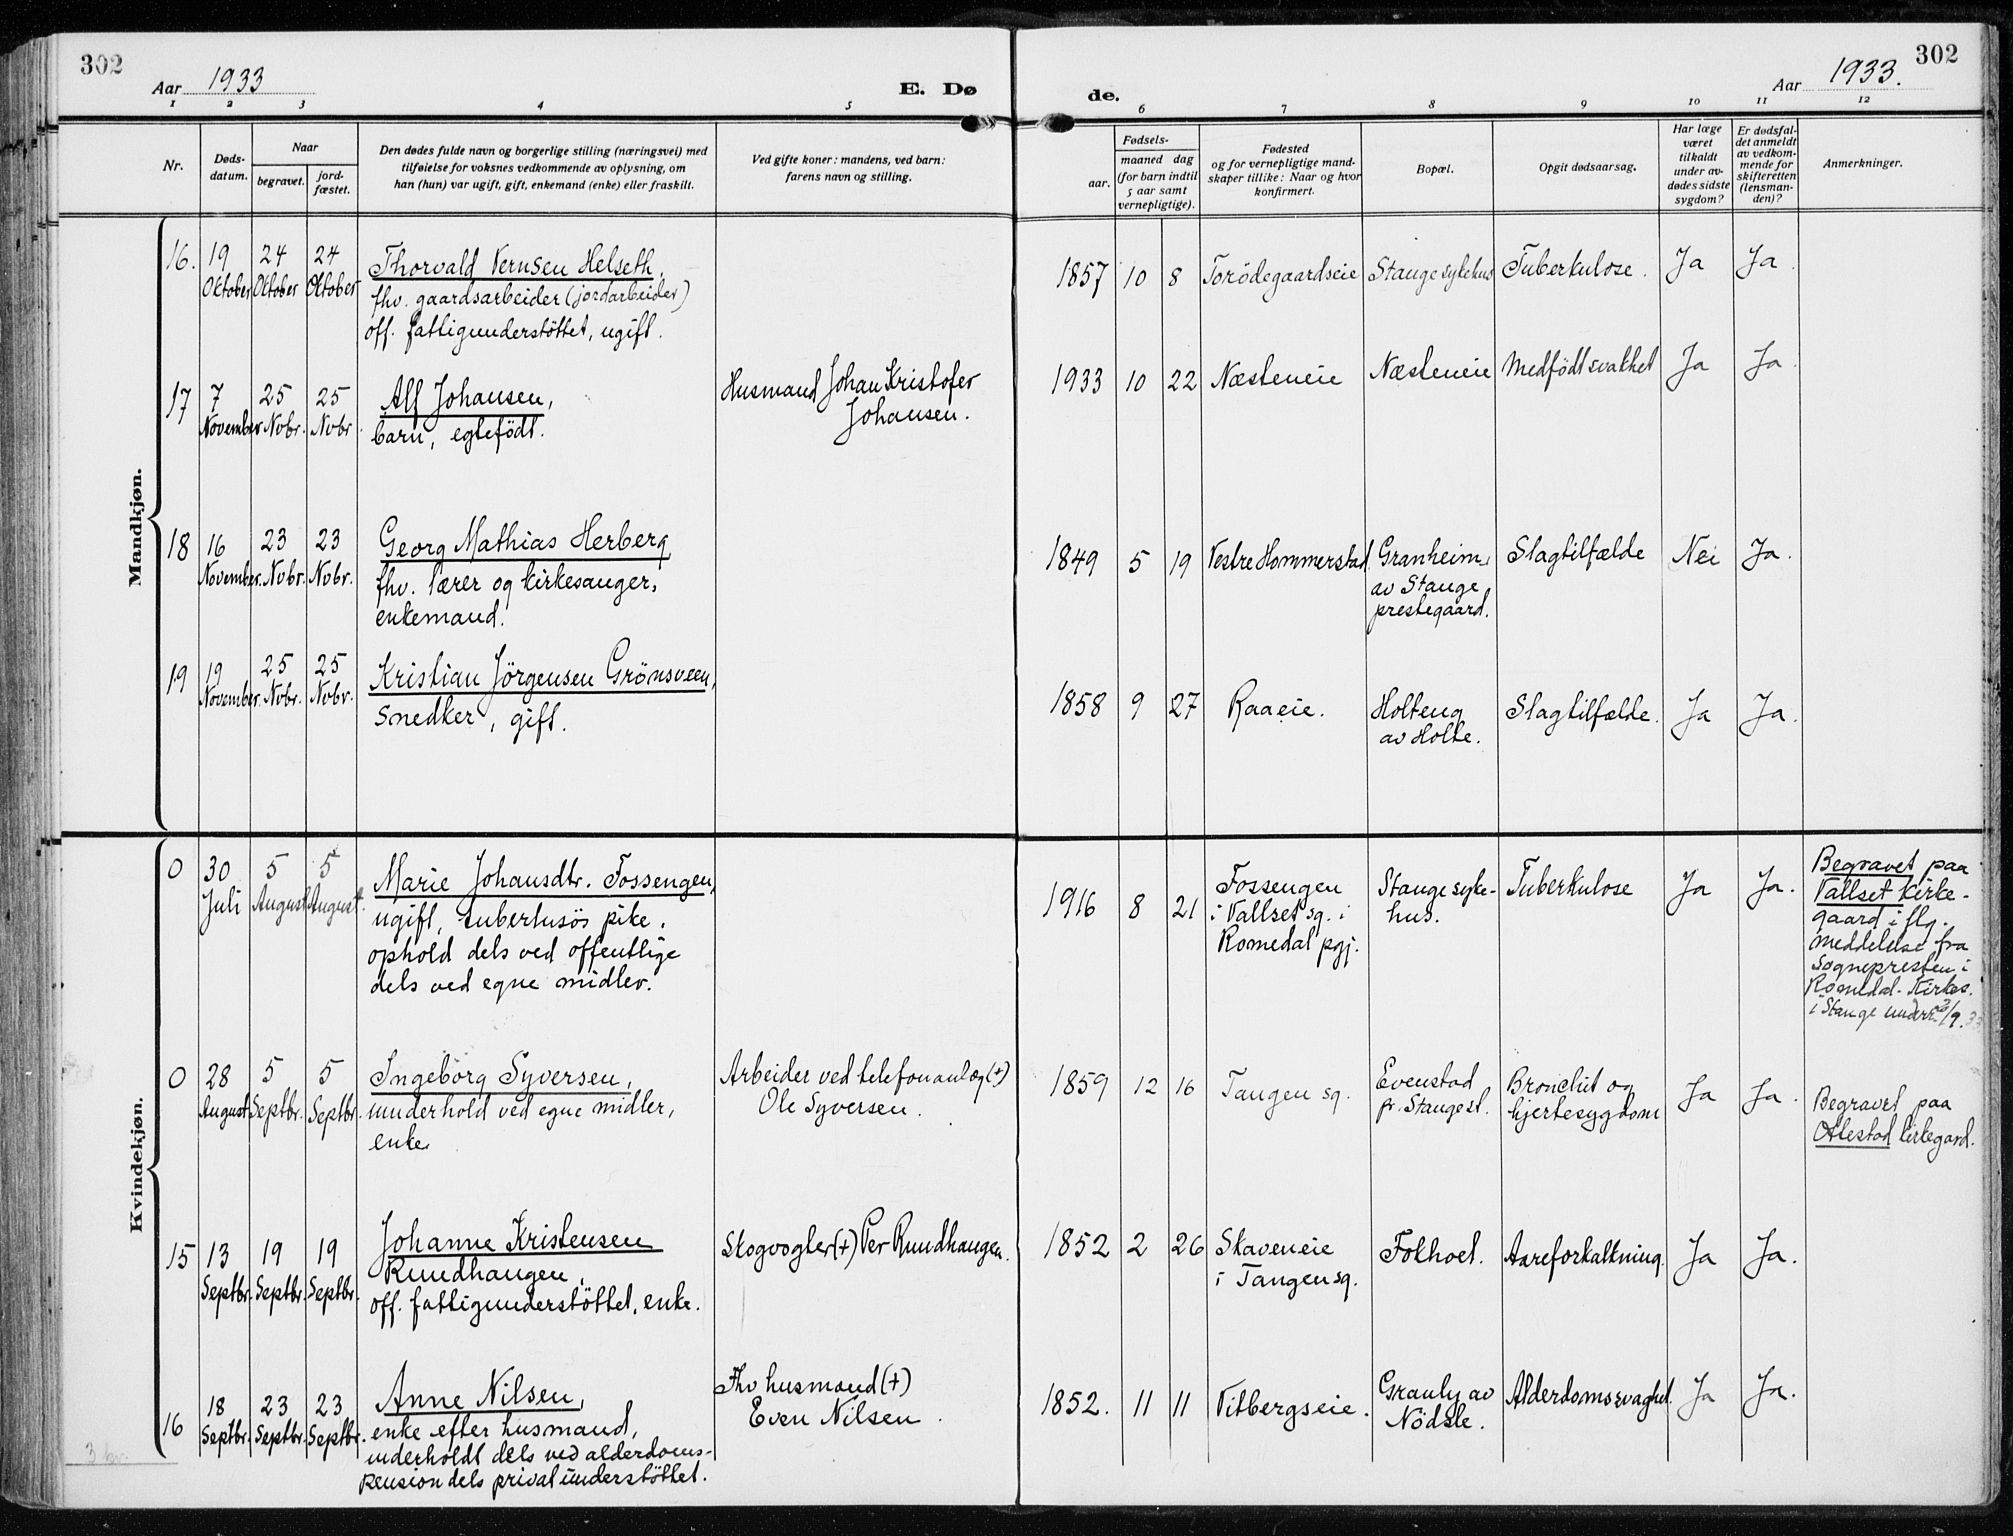 302
Aar 1933
E. Dø
de.
Aar 1933.
302
1 2 3 4 5 6 7 8 9 10 11 12
Nr.
Døds-
datum.
Naar
begravet.
jord-
fæstet.
Den dødes fulde navn og borgerlige stilling (næringsvei) med
tilføielse for voksnes vedkommende av oplysning, om
han (hun) var ugift, gift, enkemand (enke) eller fraskilt.
Ved gifte koner: mandens, ved barn:
farens navn og stilling.
Fødsels-
aar.
maaned dag
(for barn indtil
5 aar samt
vernepligtige).
Fødested
og for vernepligtige mand-
skaper tillike: Naar og hvor
konfirmert.
Bopæl.
Opgit dødsaarsag.
Har læge
været
tilkaldt
under av-
dødes sidste
sygdom?
Er dødsfal-
det anmeldt
av vedkom-
mende for
skifteretten
(lensman-
den)?
Anmerkninger.
Mandkjøn.
16.
19
Oktober
24
Oktober
24
Oktober
Thorvald Vernsen Helseth,
fhv. gaardsarbeider (jordarbeider)
off. fattigunderstöttet, ugift.
1857 10 8
Torödegaardseie
Stange sykehus
Tuberkulose.
Ja
Ja.
17
7
November
25
Nvbr.
25
Nvbr.
Alf Johansen,
barn, egtefödt.
Husmand Johan Kristofer
Johansen.
1933 10 22
Næsteneie
Næsteneie
Medfödt svakhet
Ja
Ja.
18
16
November.
23
Nvbr.
23
Nvbr.
Georg Mathias Herberg
fhv. lærer og kirkesanger,
enkemand.
1849 5 19
Vestre Hommerstad
Granheim
av Stange
prestegaard.
Slagtilfælde
Nei
Ja.
19
19
November.
25
Nvbr.
25
Nvbr.
Kristian Jörgensen Grönsveen,
Snedker, gift.
1858 9 27
Raaeie.
Holteng
av Holte.
Slagtilfælde.
Ja
Ja.
Kvindekjøn.
0
30
Juli
5
August
5
August.
Marie Johansdtr. Fossengen,
ugift, tuberkusös pike.
ophold dels ved offentlige
dels ved egne midler.
1916 8 21
Fossengen
i Vallset sq. i
Romedal pgj.
Stange syke-
hus.
Tuberkulose
Ja
Ja.
Begravet paa
Vallset kirke-
gaard i flg.
meddelelse fra
Sognepresten i
Romedal. Kirkes.
i Stange underr.
0
28
August
5
Septbr.
5
Septbr.
Ingeborg Syversen,
underhold ved egne midler,
enke.
Arbeider ved telefonanlæg (+)
Ole Syversen.
1859 12 16
Tangen sq.
Evenstad
pr. Stange st.
Bronchit og
hjertesygdom
Ja
Ja.
Begravet paa
Ottestad kirkegard.
15
13
Septbr.
19
Septbr.
19
Septbr.
Johanne Kristensen
Rundhaugen,
off. fattigunderstöttet, enke.
Skogvogter (+) Per Rundhaugen.
1852 2 26
Staveneie
i Tangen sq.
Fokhoel.
Aareforkalkning.
Ja
Ja.
16
18
Septbr.
23
Septbr.
23
Septbr.
Anne Nilsen,
enke efter husmand,
underholdt dels ved alderdoms-
pension dels privat understöttet.
Fhv. husmand (+)
Even Nilsen.
1852. 11 11
Vitbergseie.
Granly av
Nödsle.
Alderdomssvaghet.
Ja
Ja.